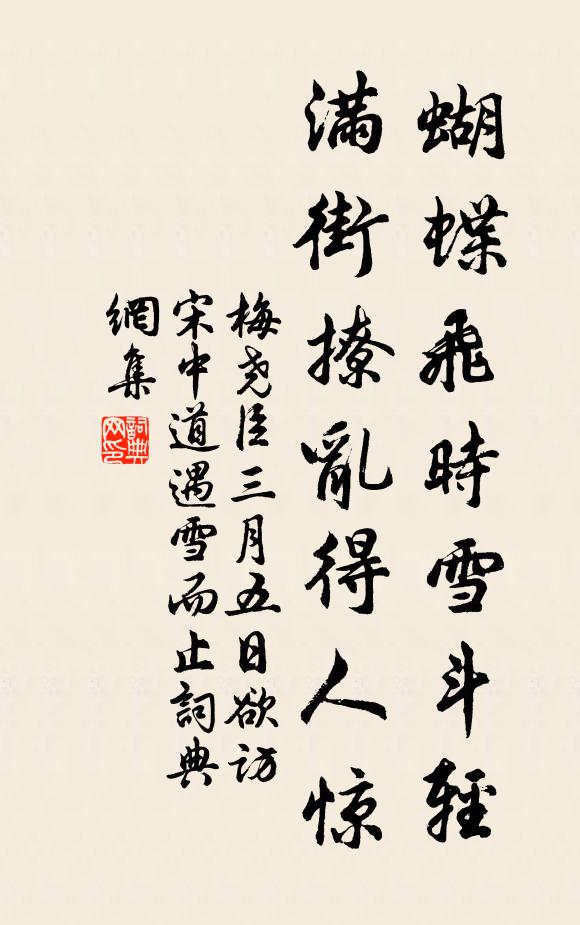 蝴蝶飛時雪斗輕
滿街撩亂得人惊
梅堯臣三月五日欲访
宋中道遇雪而止詞典
網集
詞典网印